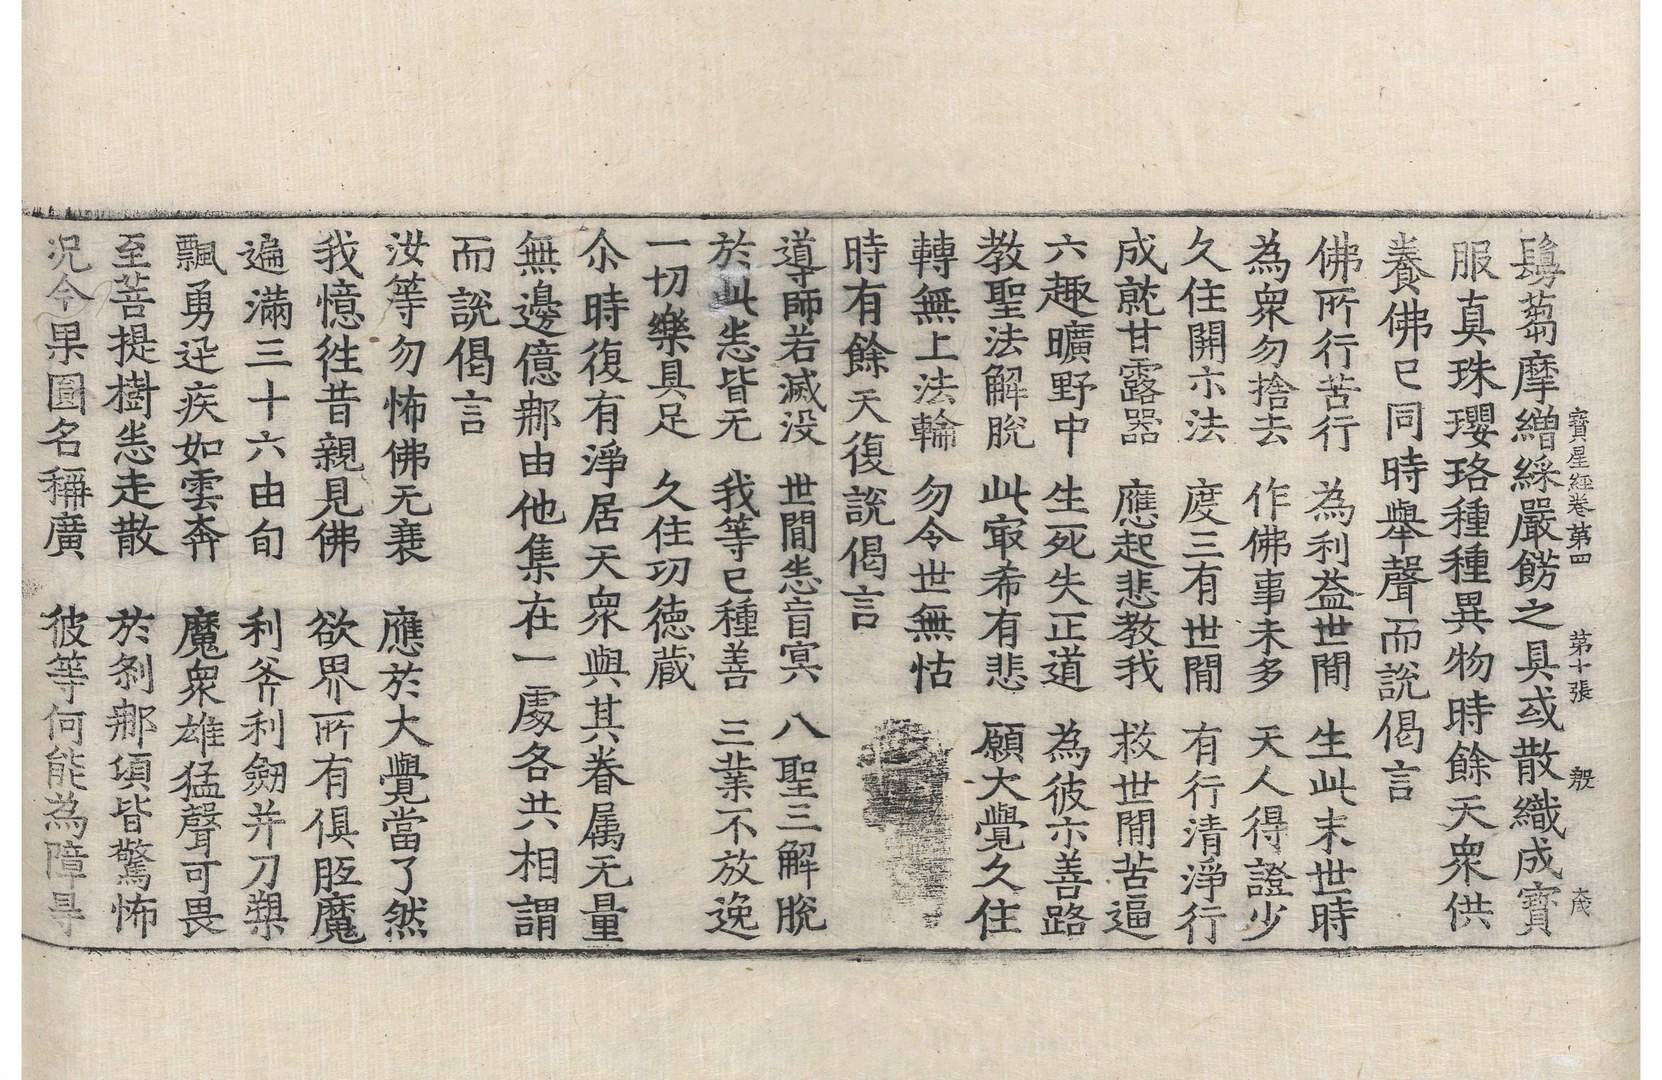 鬘蒭摩繒綵嚴餝之具或散織成寶
寶星經卷第四 第十張 殷 大茂
服真珠瓔珞種種異物時餘天衆供
養佛已同時舉聲而說偈言
佛所行苦行 為利益世間 生此末世時
為衆勿捨去 作佛事未多 天人得證少
久住開示法 度三有世間 有行清淨行
成就甘露器 應起悲教我 救世間苦逼
六趣曠野中 生死失正道 為彼示善路
教聖法解脫 此冣希有悲 願大覺久住
轉無上法輪 勿令世無怙
時有餘天復說偈言
導師若滅没 世間悉盲冥 八聖三解脫
於此悉皆无 我等已種善 三業不放逸
一切樂具足 久住功徳藏
尒時復有淨居天衆與其眷属无量
無邊億那由他集在一處各共相謂
而說偈言
汝等勿怖佛无衰 應於大覺當了然
我憶徃昔親見佛 欲界所有俱胝魔
遍滿三十六由旬 利斧利劒并刀槊
飄勇迅疾如雲奔 魔衆雄猛聲可畏
至菩提樹悉走散 於剎那頃皆驚怖
况今果圓名稱廣 彼等何能為障㝵